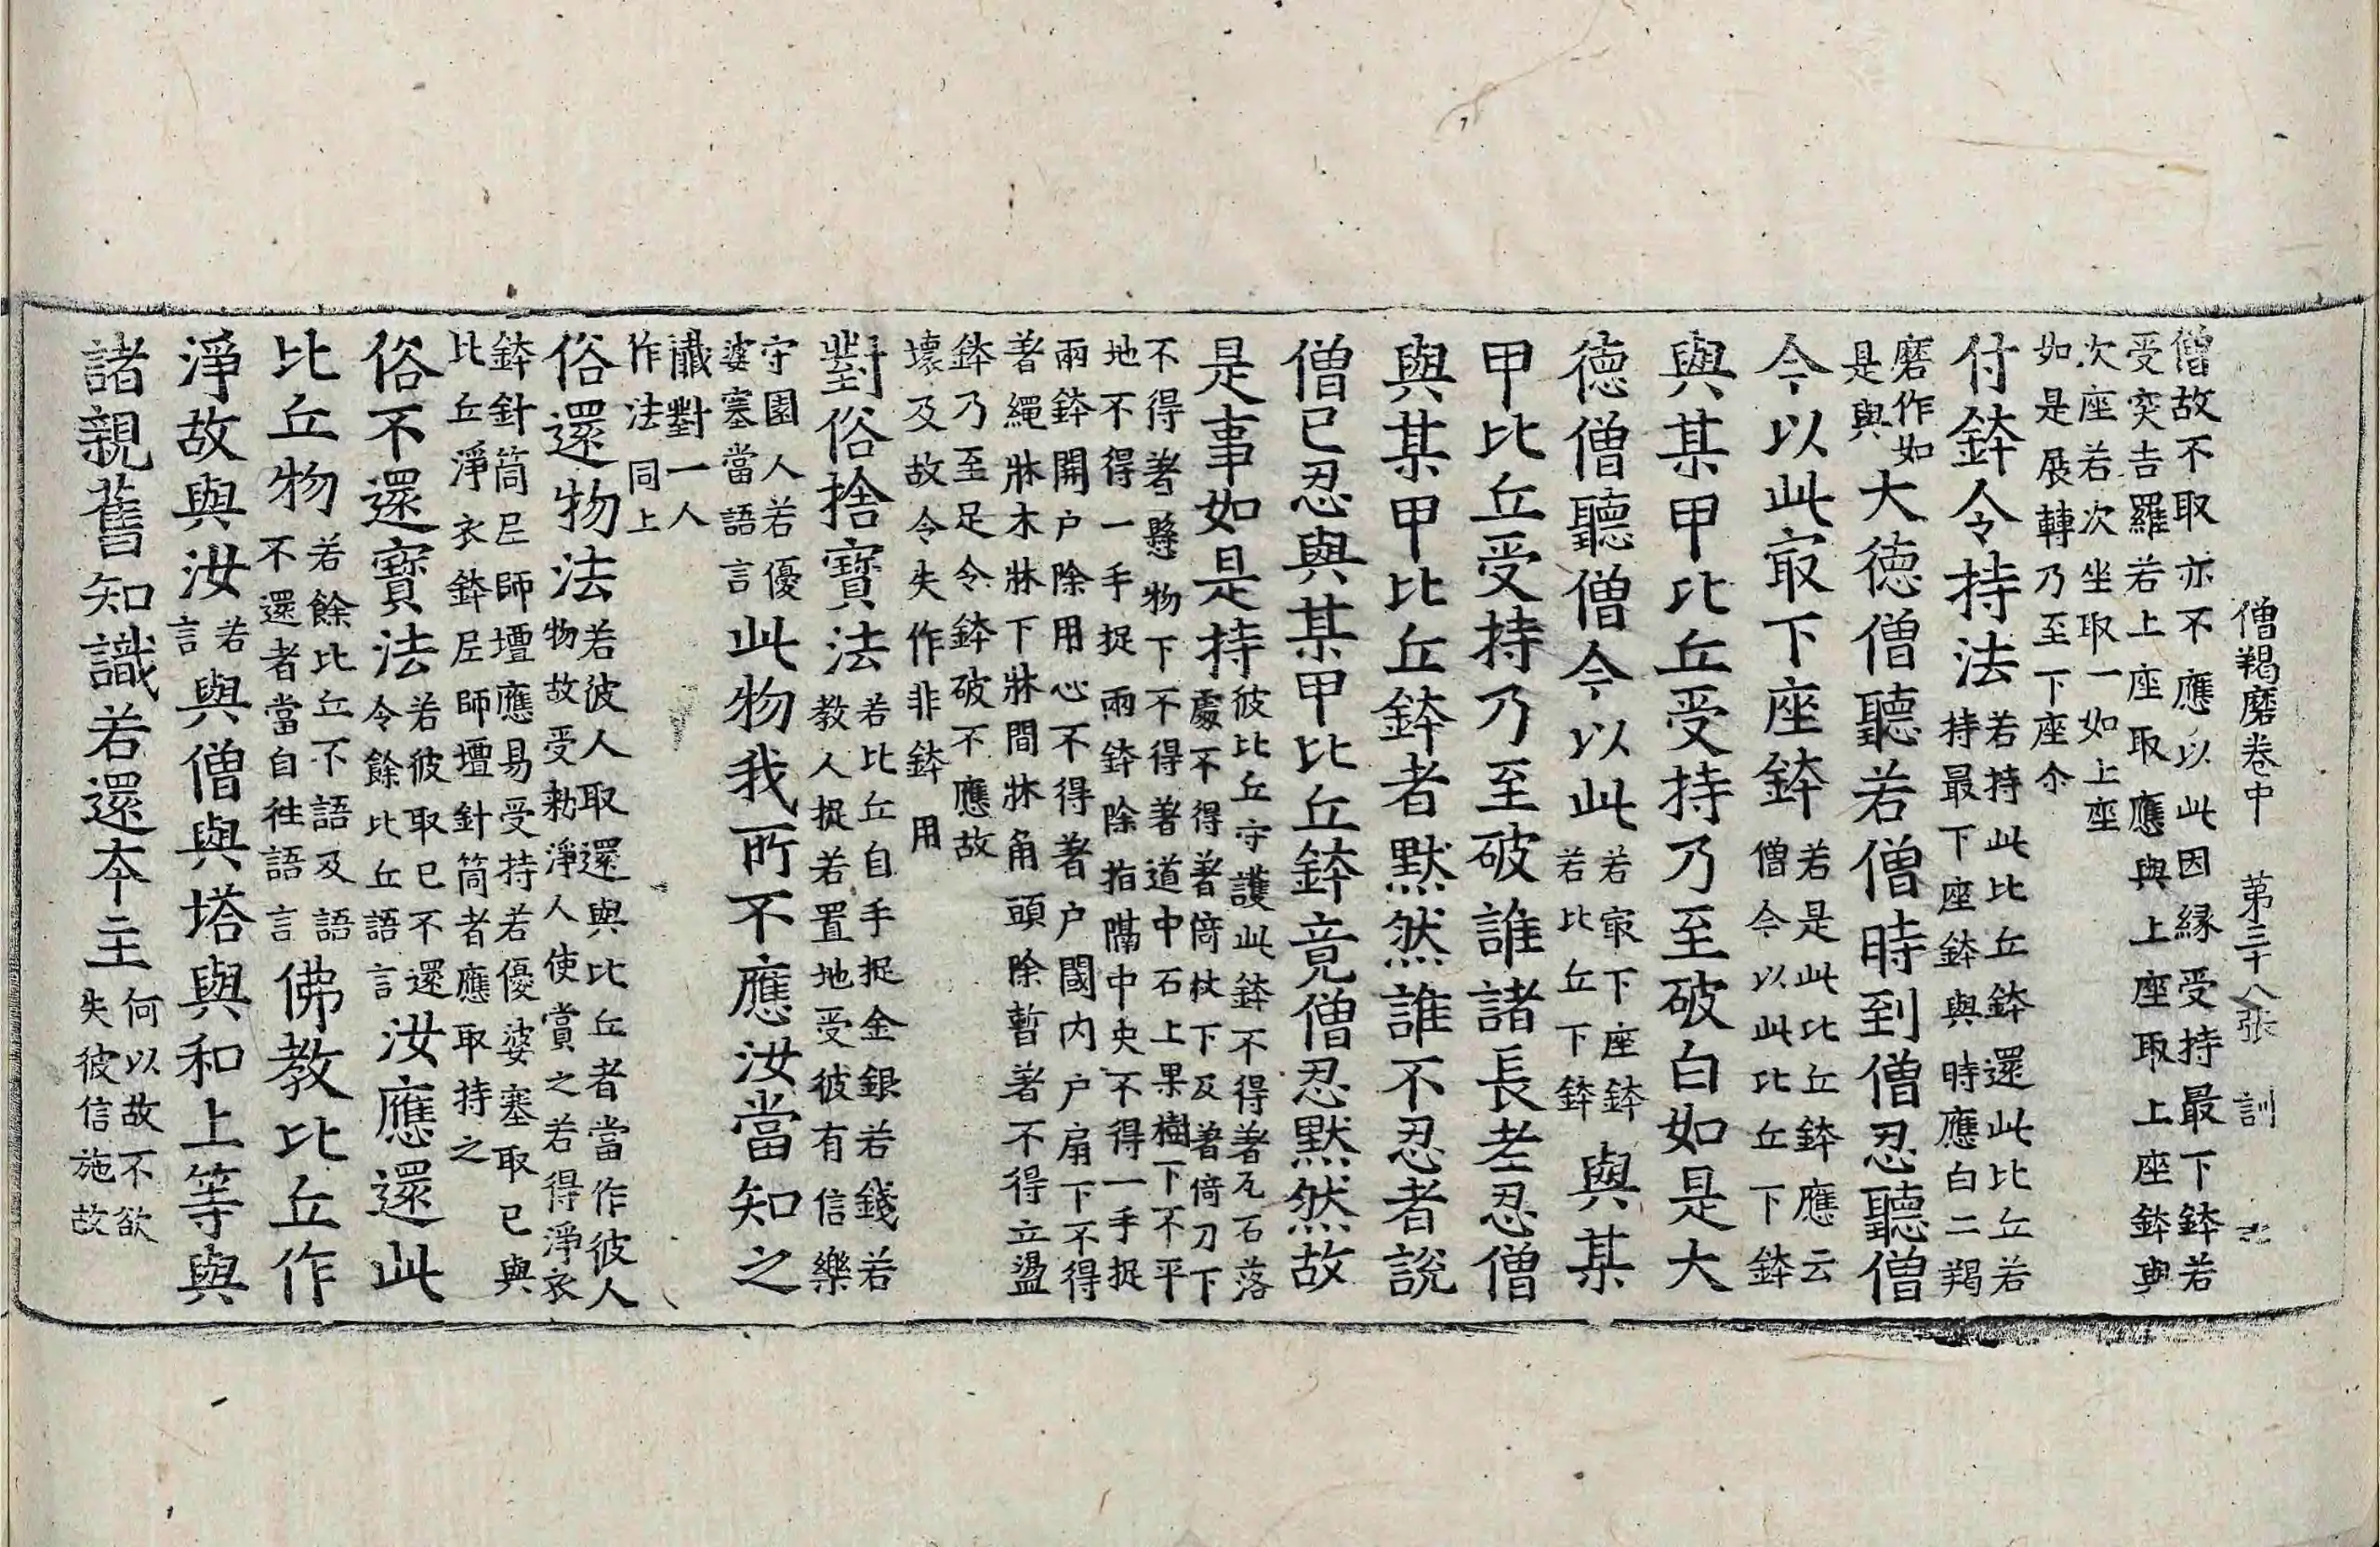 僧羯磨卷中　第三十八張　訓
僧故不取亦不應以此因緣受持最下鉢若
受突吉羅若上座取應與上座取上座鉢與
次座若次坐取一如上座
如是展轉乃至下座尒
付鉢令持法若持此比丘鉢還此比丘若
持最下座鉢與時應白二羯
磨作如
是與大德僧聽若僧時到僧忍聽僧
今以此㝡下座鉢若是此比丘鉢應云
僧今以此比丘下鉢
與某甲比丘受持乃至破白如是大
德僧聽僧今以此若㝡下座鉢
若比丘下鉢與某
甲比丘受持乃至破誰諸長老忍僧
與某甲比丘鉢者默然誰不忍者說
僧已忍與某甲比丘鉢竟僧忍默然故
是事如是持彼比丘守護此鉢不得著瓦石落
處不得著倚杖下及著倚刀下
不得著懸物下不得著道中石上果樹下不平
地不得一手捉兩鉢除指隔中央不得一手捉
兩鉢開户除用心不得著户閫内户扇下不得
著繩牀木牀下牀間牀角頭除暫著不得立盪
鉢乃至足令鉢破不應故
壞及故令失作非鉢用
對俗捨寶法若比丘自手捉金銀若錢若
教人捉若置地受彼有信樂
守園人若優
婆塞當語言此物我所不應汝當知之
懺對一人
作法同上
俗還物法若彼人取還與比丘者當作彼人
物故受勑淨人使賞之若得淨衣
鉢針筒尼師壇應易受持若優婆塞取已與
比丘淨衣鉢尼師壇針筒者應取持之
俗不還寶法若彼取已不還
令餘比丘語言汝應還此
比丘物若餘比丘不語及語
不還者當自往語言佛教比丘作
淨故與汝若
言與僧與塔與和上等與
諸親舊知識若還夲主何以故不欲
失彼信施故